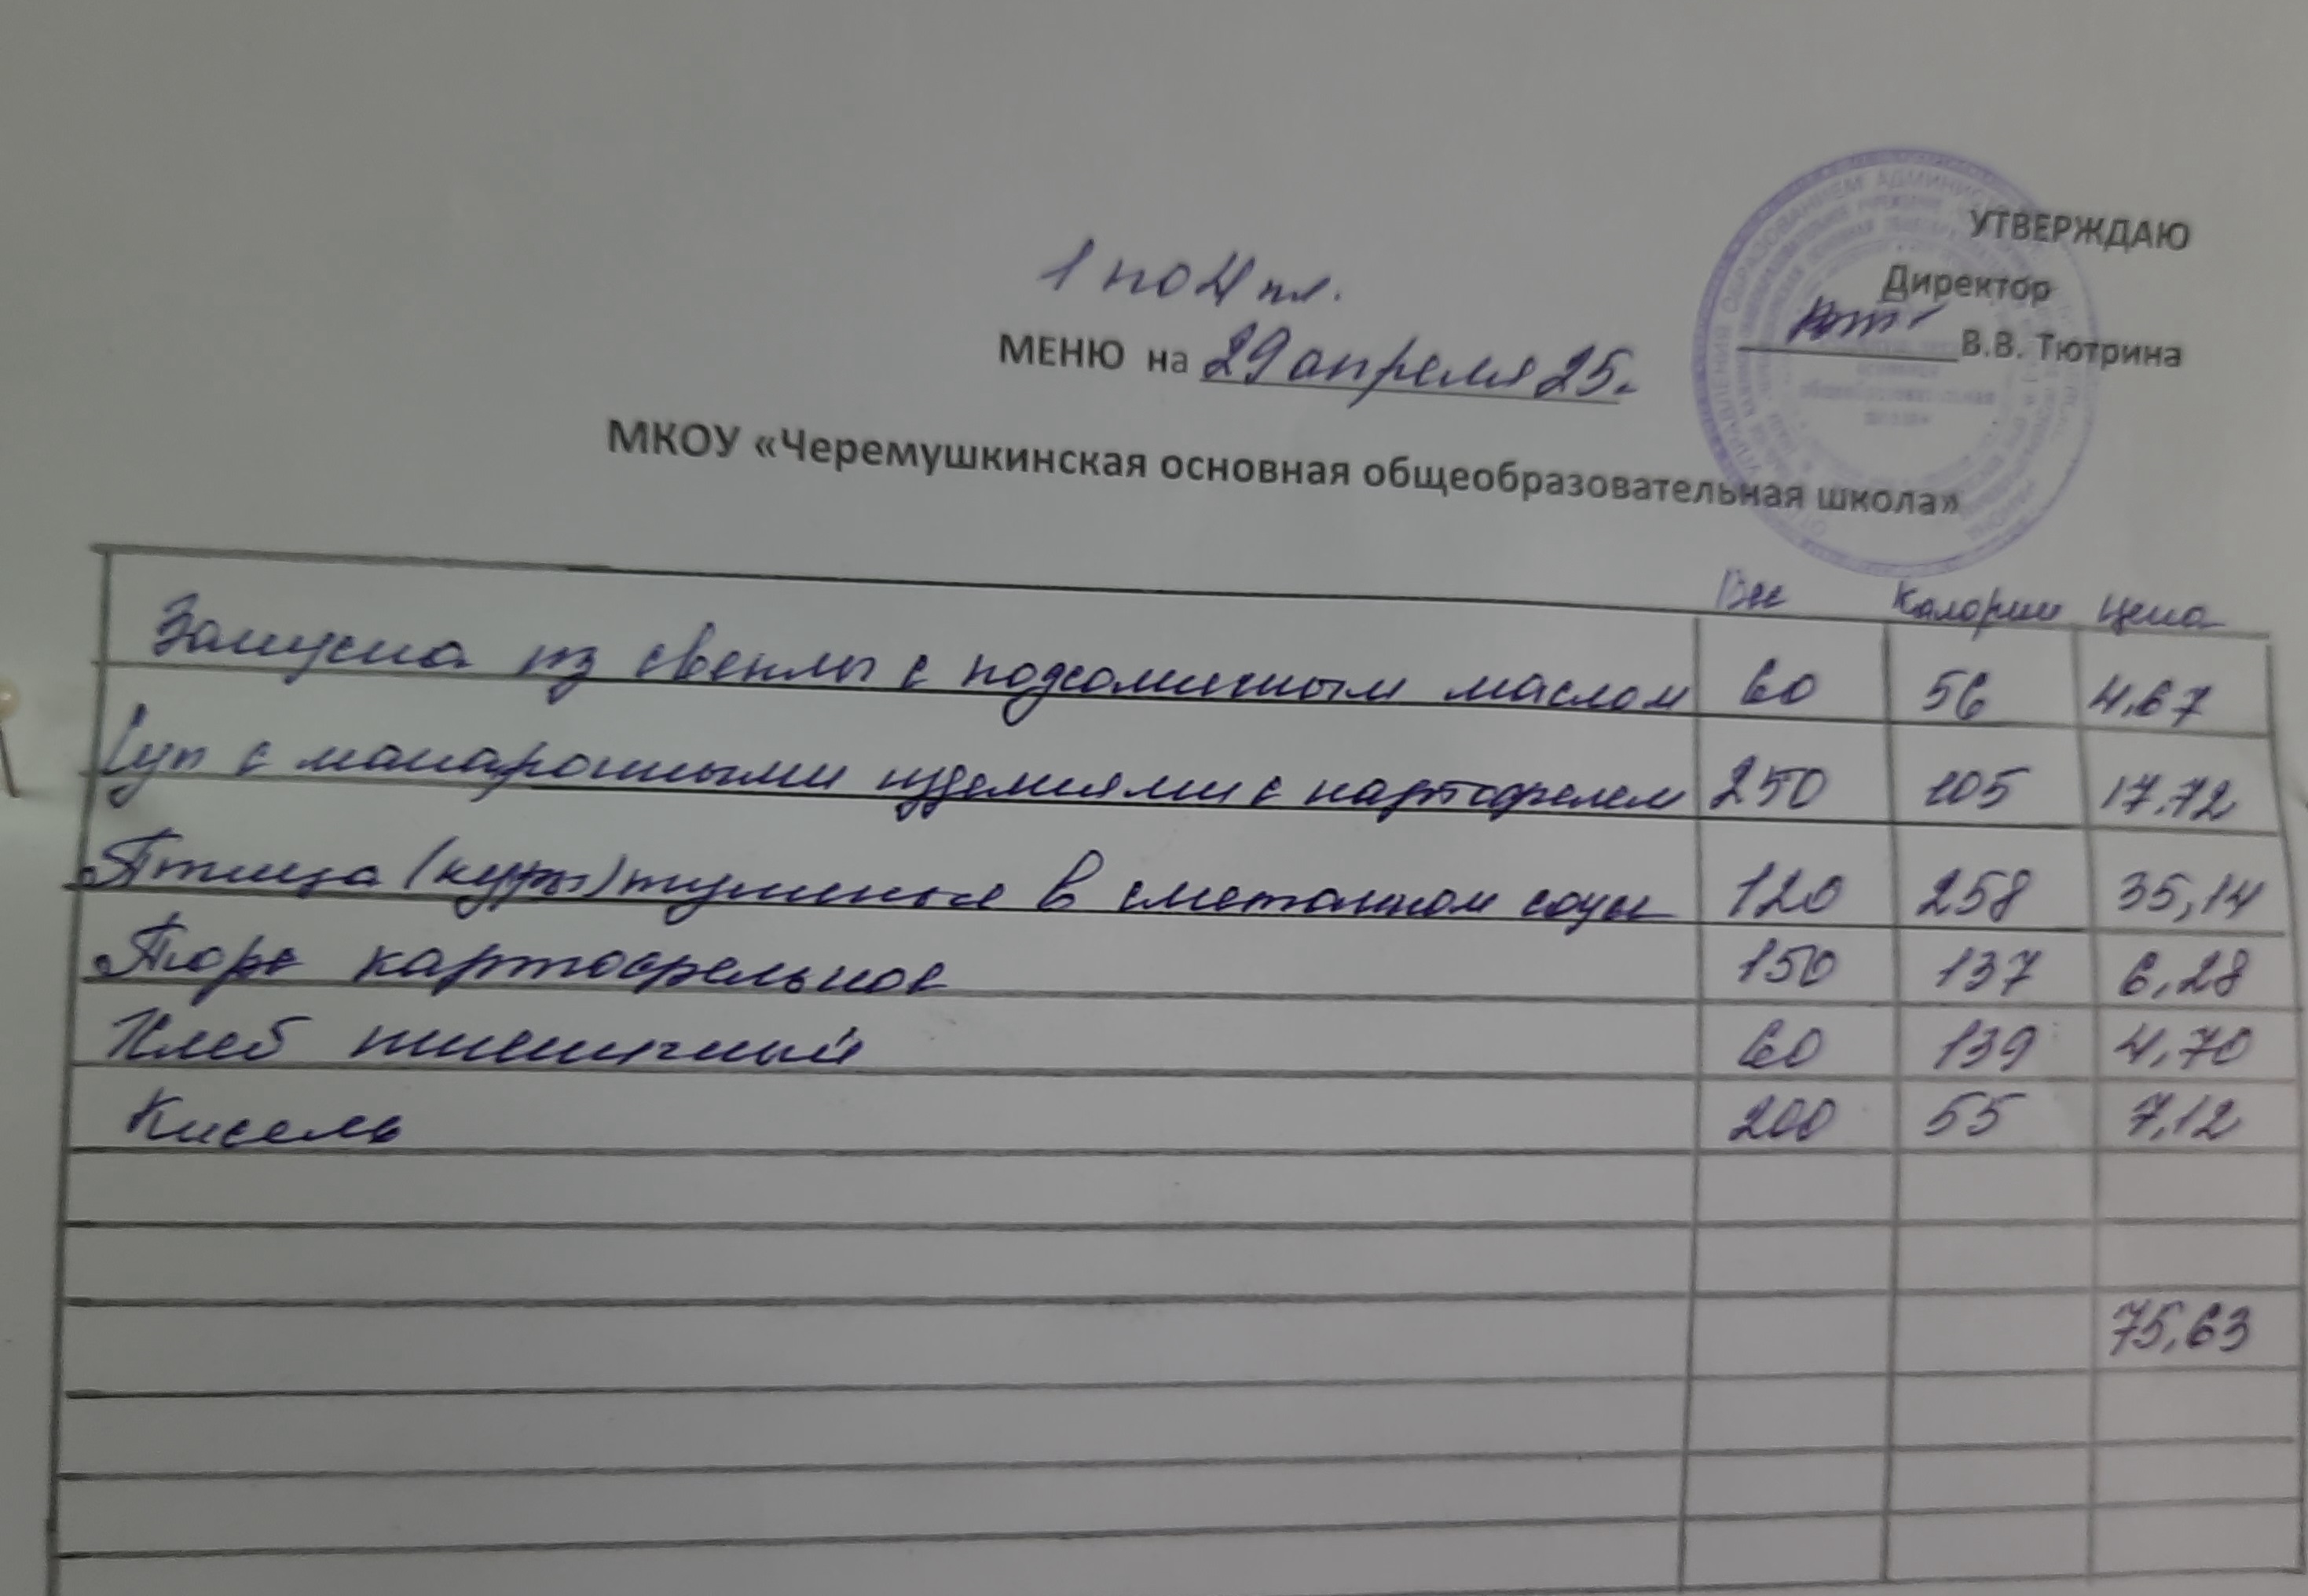 УТВЕРЖДАЮ
Директор
В.В. Тютрина
1 по 4 кл.
МЕНЮ на 29 апреля 25г.
МКОУ «Черемушкинская основная общеобразовательная школа»
Вес Калории Цена
Закуска из свеклы с подсолнечным маслом 60 56 4,67
Суп с макаронными изделиями с картофелем 250 105 17.72
Птица (куры) тушеные в сметанном соусе 120 258 35,14
Пюре картофельное 150 137 6,28
Хлеб пшеничный 60 139 4,70
Кисель 200 55 7,12
75,63